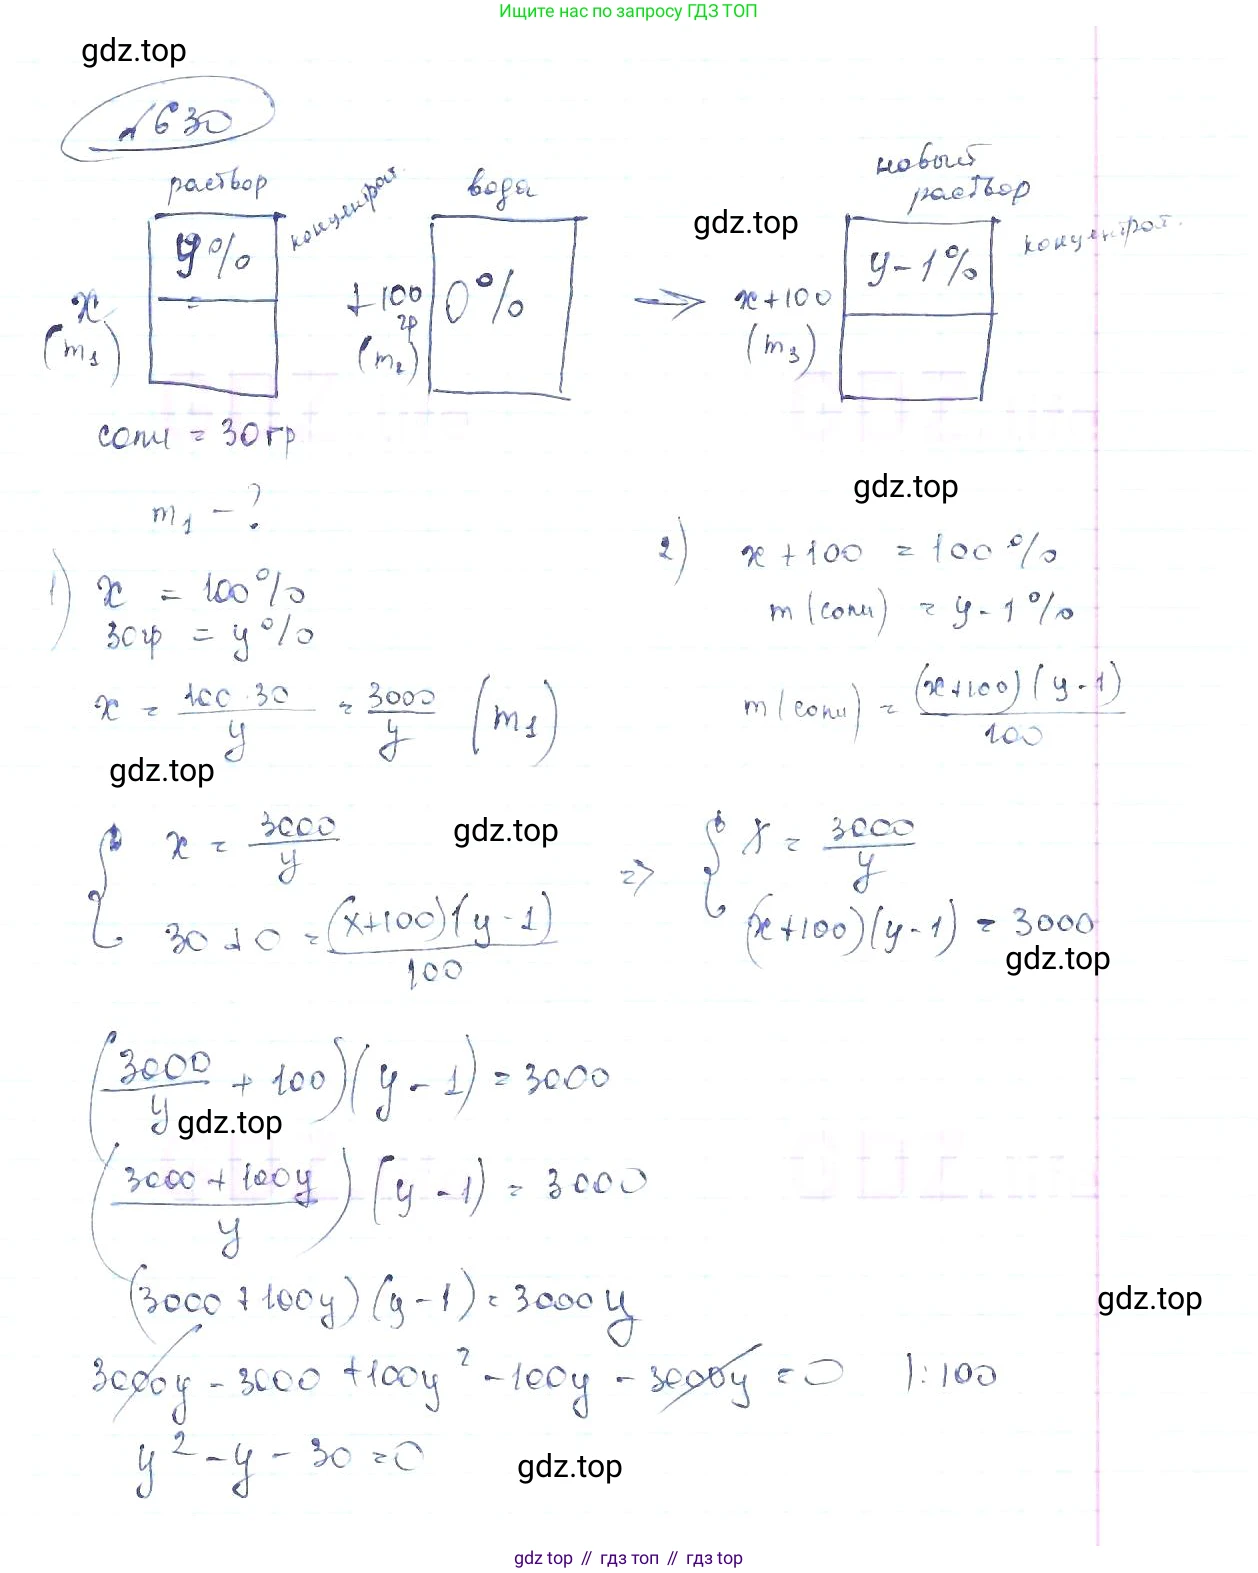 Ищите нас по запросу ГДЗ ТОП
gdz.top
№630
раствор
концентрат.
вода
новый
раствор
концентрат.
gdz.top
y%
x
(m₁)
+100
гр
(m₂)
0%
x+100
(m₃)
y-1%
соли = 30гр
m₁ - ?
gdz.top
1) x = 100%
30гр = y%
x = 100·30/y = 3000/y (m₁)
2) x + 100 = 100%
m(соли) = y-1%
m(соли) = (x+100)(y-1)/100
gdz.top
{ x = 3000/y
30+0 = (x+100)(y-1)/100
gdz.top
=> { x = 3000/y
(x+100)(y-1) = 3000
gdz.top
(3000/y + 100)(y-1) = 3000
gdz.top
((3000+100y)/y)(y-1) = 3000
(3000+100y)(y-1) = 3000y
gdz.top
3000y - 3000 + 100y² - 100y - 3000y = 0 |:100
y² - y - 30 = 0
gdz.top
gdz top // гдз топ // gdz top